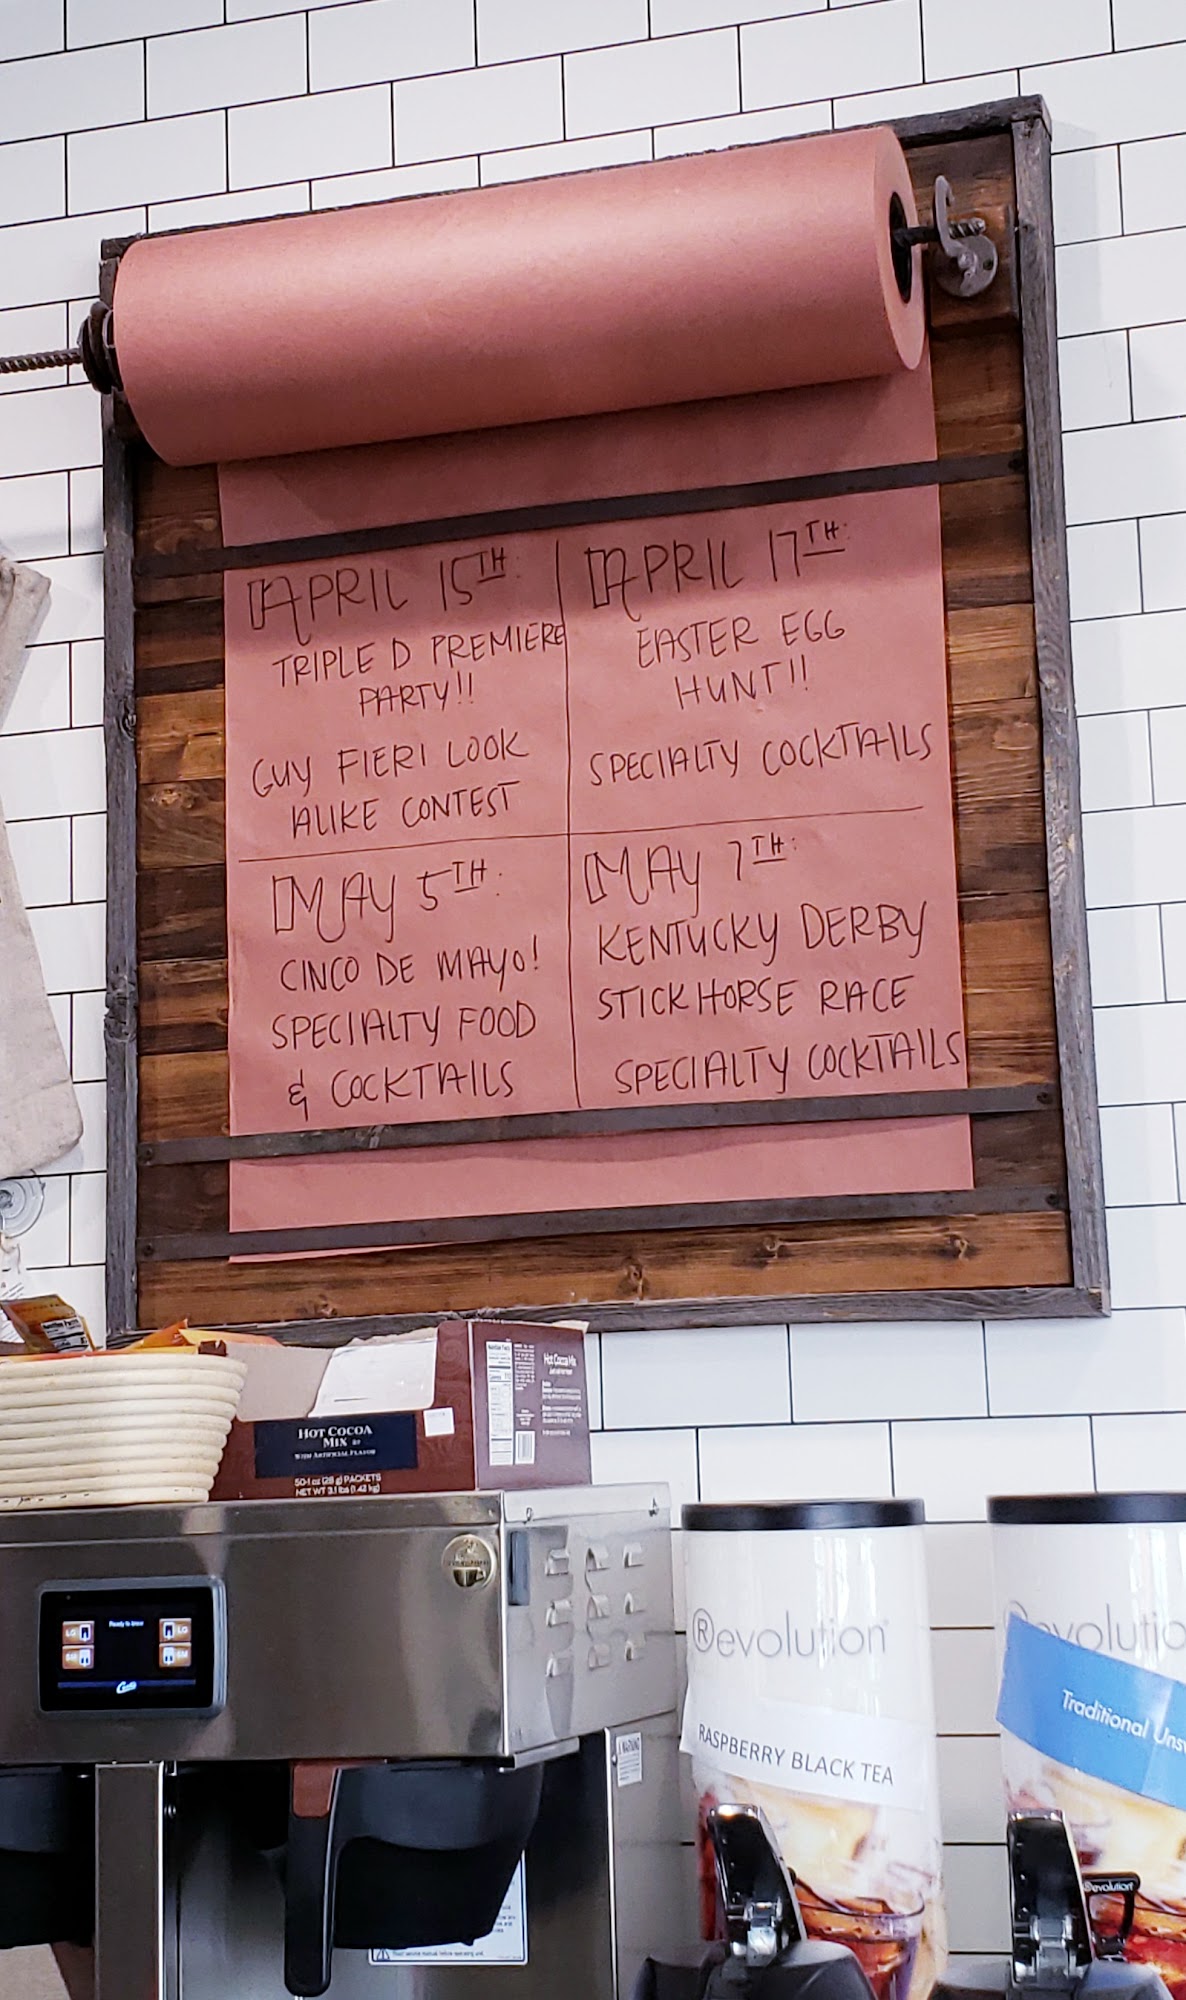 APRIL 15TH:
TRIPLE D PREMIERE
PARTY!!
GUY FIERI LOOK
ALIKE CONTEST
APRIL 17TH:
EASTER EGG
HUNT!!
SPECIALTY COCKTAILS
MAY 5TH:
CINCO DE MAYO!
SPECIALTY FOOD
& COCKTAILS
MAY 7TH:
KENTUCKY DERBY
STICK HORSE RACE
SPECIALTY COCKTAILS
HOT COCOA
MIX
WITH ARTIFICIAL FLAVOR
50-1 oz (28 g) PACKETS
NET WT 3.1 lbs (1.42 kg)
Nutrition Facts
Hot Cocoa Mix
Ready to brew
LG
LG
SM
SM
Curtis
®evolution
RASPBERRY BLACK TEA
®evolutio
Traditional Uns
®evolution